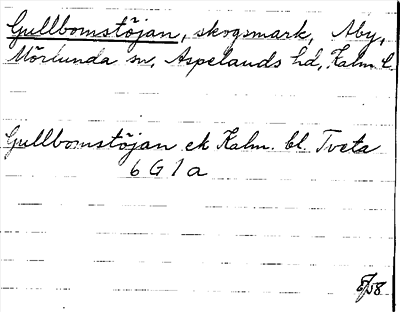 Gullbomstöjan, skogsmark, Åby,
Mörlunda sn, Aspelands hd, Kalm. l.
Gullbomstöjan ek Kalm. bl. Tveta
6 G 1 a